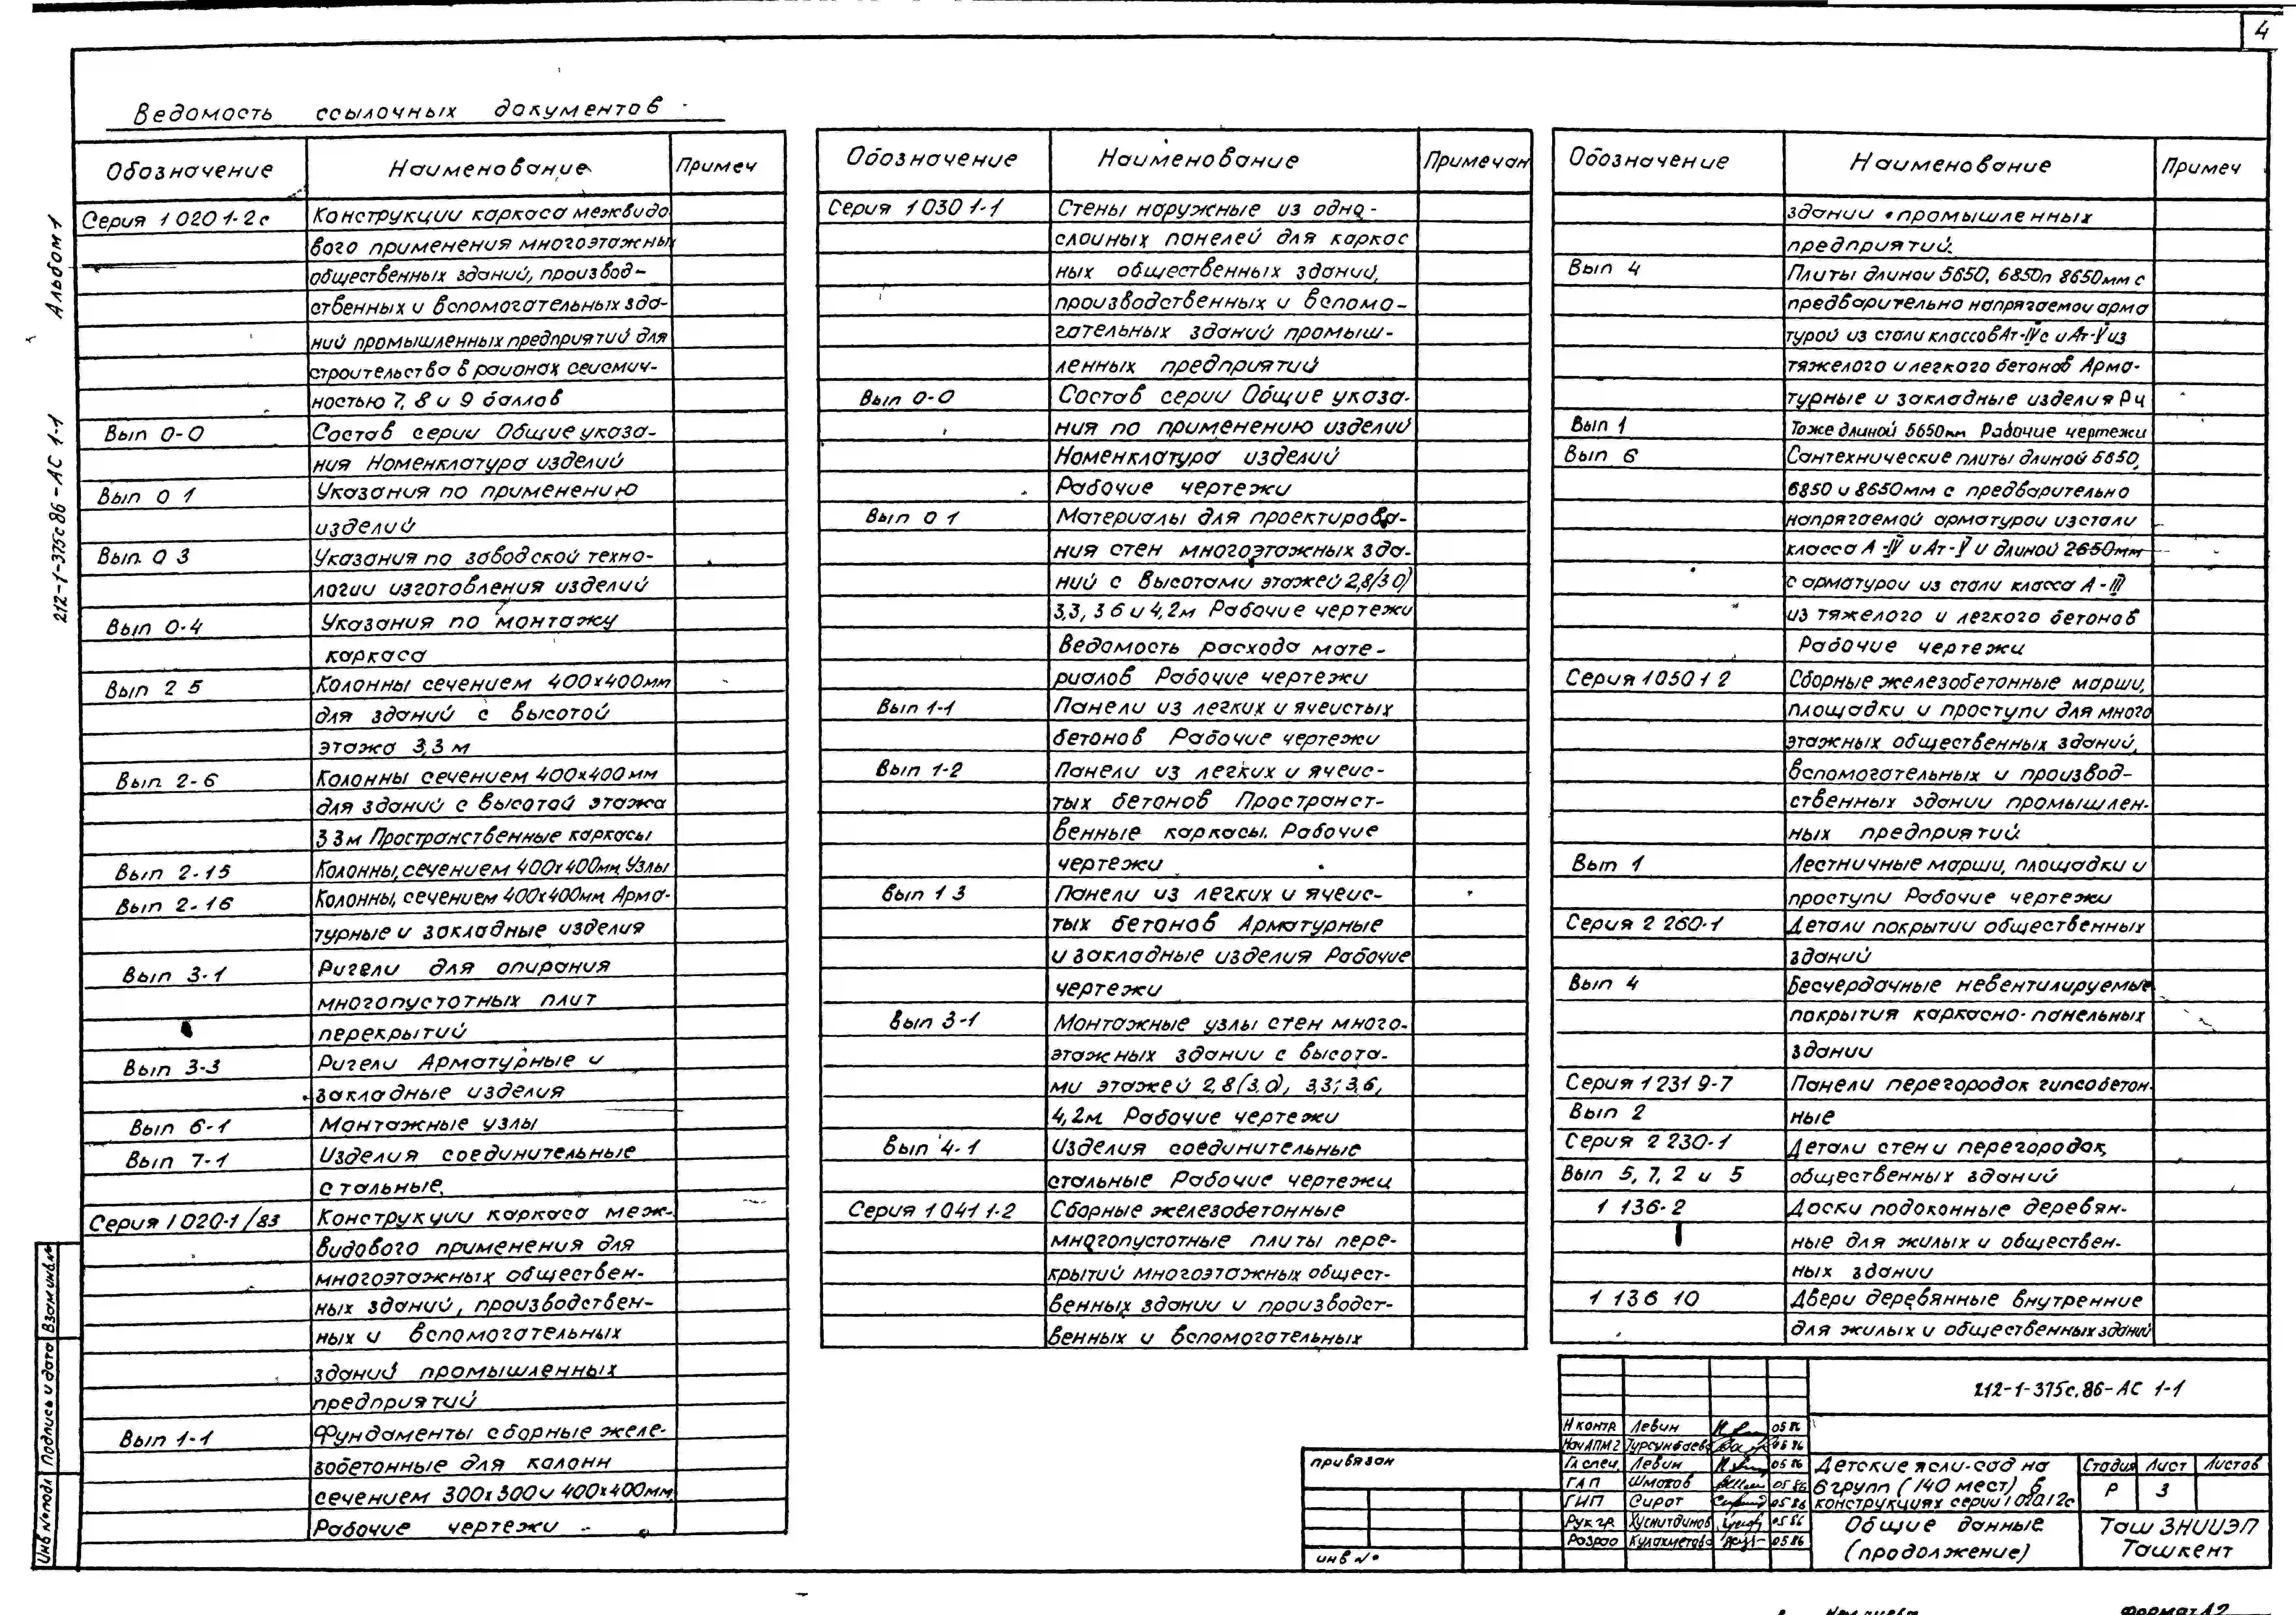 4
Ведомость ссылочных документов
Обозначение Наименование Примеч
Серия 1 020 1-2с Конструкции каркаса межвидо
вого применения многоэтажны
общественных зданий, производ-
ственных и вспомогательных зда-
ний промышленных предприятий для
строительства в районах сейсмич-
ностью 7, 8 и 9 баллов
Вып 0-0 Состав серии Общие указа-
ния Номенклатура изделий
Вып 0 1 Указания по применению
изделий
Вып. 0 3 Указания по заводской техно-
логии изготовления изделий
Вып 0-4 Указания по монтажу
каркаса
Вып 2 5 Колонны сечением 400х400мм
для зданий с высотой
этажа 3,3 м
Вып. 2-6 Колонны сечением 400х400мм
для зданий с высотой этажа
3 3м Пространственные каркасы
Вып 2-15 Колонны, сечением 400х400мм Узлы
Вып 2-16 Колонны, сечением 400х400мм Арма-
турные и закладные изделия
Вып 3-1 Ригели для опирания
многопустотных плит
перекрытий
Вып 3-3 Ригели Арматурные и
закладные изделия
Вып 6-1 Монтажные узлы
Вып 7-1 Изделия соединительные
стальные.
Серия 1 020-1/83 Конструкции каркаса меж-
видового применения для
многоэтажных обществен-
ных зданий, производствен-
ных и вспомогательных
зданий промышленных
предприятий
Вып 1-1 Фундаменты сборные желе-
зобетонные для колонн
сечением 300х300 и 400х400мм.
Рабочие чертежи
Обозначение Наименование Примечан
Серия 1 030 1-1 Стены наружные из одно-
слойных панелей для каркас
ных общественных зданий,
производственных и вспомо-
гательных зданий промыш-
ленных предприятий
Вып 0-0 Состав серии Общие указа-
ния по применению изделий
Номенклатура изделий
Рабочие чертежи
Вып 0 1 Материалы для проектирова-
ния стен многоэтажных зда-
ний с высотами этажей 2,8/3 0)
3,3, 3 6 и 4,2м Рабочие чертежи
Ведомость расхода мате-
риалов Рабочие чертежи
Вып 1-1 Панели из легких и ячеистых
бетонов Рабочие чертежи
Вып 1-2 Панели из легких и ячеис-
тых бетонов Пространст-
венные каркасы. Рабочие
чертежи
Вып 1 3 Панели из легких и ячеис-
тых бетонов Арматурные
и закладные изделия Рабочие
чертежи
Вып 3-1 Монтажные узлы стен много-
этажных здании с высота-
ми этажей 2,8(3.0), 3,3; 3.6,
4,2м. Рабочие чертежи
Вып 4-1 Изделия соединительные
стальные Рабочие чертежи
Серия 1 041 1-2 Сборные железобетонные
многопустотные плиты пере-
крытий многоэтажных общест-
венных здании и производст-
венных и вспомогательных
Обозначение Наименование Примеч
здании промышленных
предприятий.
Вып 4 Плиты длиной 5650, 6850п 8650мм с
предварительно напрягаемой арма
турой из стали классов Ат-IVс и Ат-V из
тяжелого и легкого бетонов Арма-
турные и закладные изделия Рч
Вып 1 Тоже длиной 5650мм Рабочие чертежи
Вып 6 Сантехнические плиты длиной 5650,
6850 и 8650мм с предварительно
напрягаемой арматурой из стали
класса А-IV и Ат-V и длиной 2650мм
с арматурой из стали класса А-III
из тяжелого и легкого бетонов
Рабочие чертежи
Серия 1 050 1 2 Сборные железобетонные марши,
площадки и проступи для много
этажных общественных зданий,
вспомогательных и производ-
ственных здании промышлен-
ных предприятий.
Вып 1 Лестничные марши, площадки и
проступи Рабочие чертежи
Серия 2 260-1 Детали покрытии общественных
зданий
Вып 4 Бесчердачные невентилируемые
покрытия каркасно-панельных
здании
Серия 1 231 9-7 Панели перегородок гипсобетон-
Вып 2 ные
Серия 2 230-1 Детали стен и перегородок,
Вып 5, 7, 2 и 5 общественных зданий
1 136-2 Доски подоконные деревян-
ные для жилых и обществен-
ных здании
1 136 10 Двери деревянные внутренние
для жилых и общественных зданий
Альбом 1
212-1-375с86-АС 1-1
Взам инв.№
Подпись и дата
Инв №подл
привязан
инв №
212-1-375с.86-АС 1-1
Н контр Левин 05 86
Нач АПМ2 Турсунбаева 05 86
Гл спец. Левин 05 86
ГАП Шмаков 05 86
ГИП Сирот 05 86
Рук гр. Хуснитдинов 05 86
Разраб Кулахметова 05 86
Детские ясли-сад на
6 групп (140 мест) в
конструкциях серии 1 020.1 2с
Стадия Лист Листов
Р 3
Общие данные
(продолжение)
Таш ЗНИИЭП
Ташкент
Формат А2